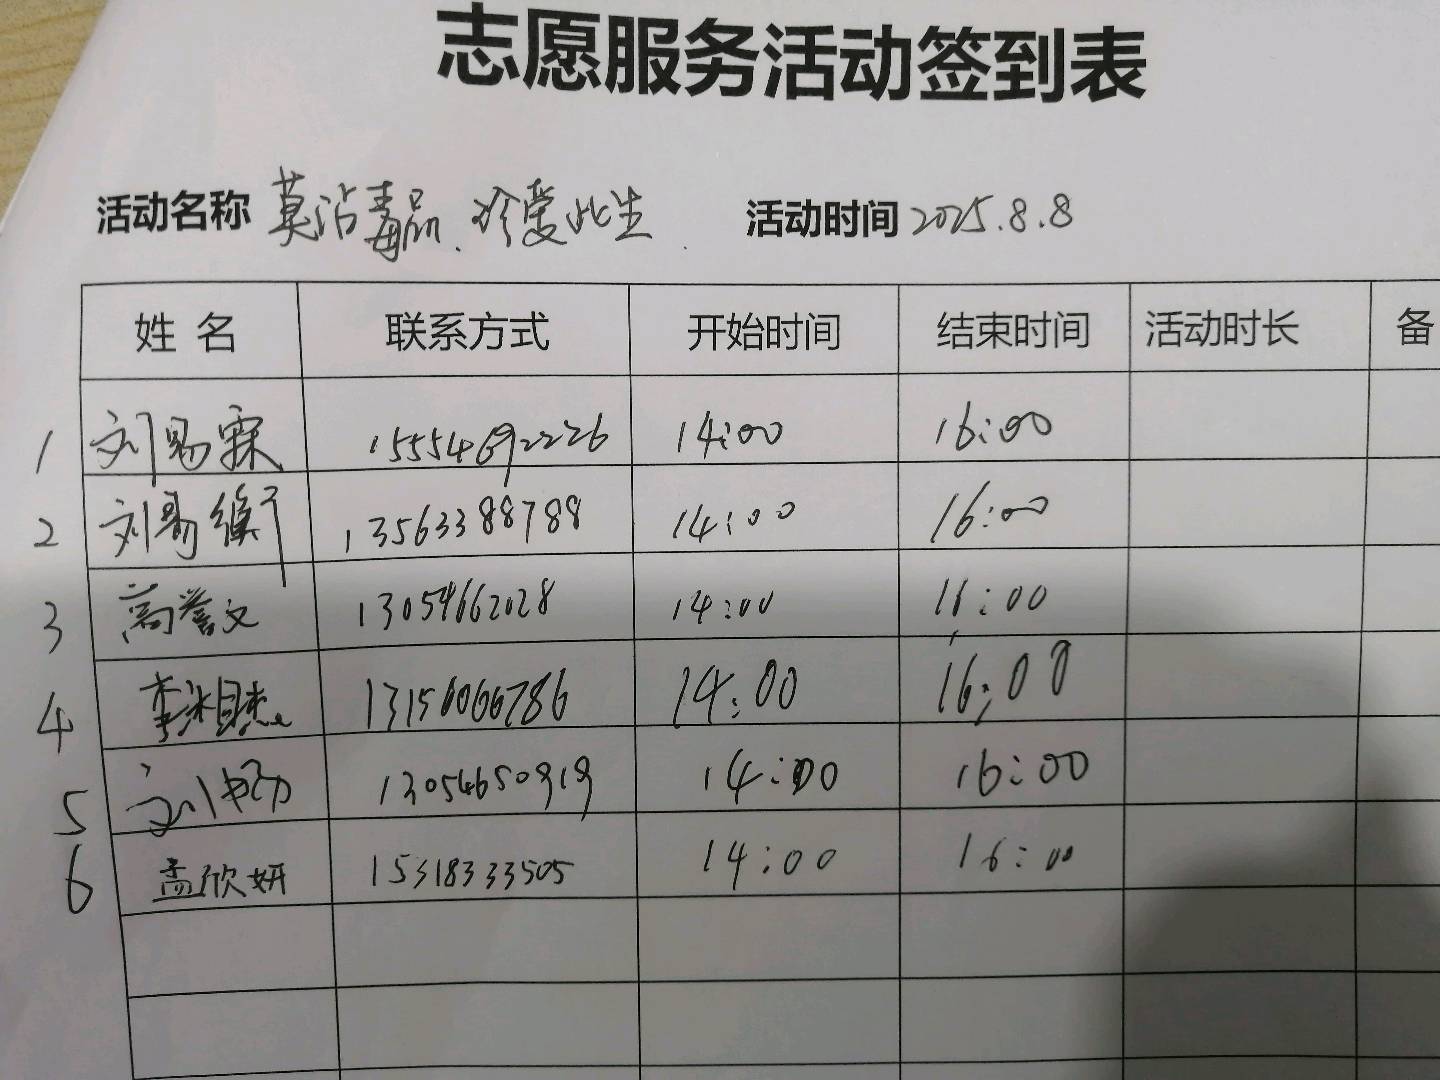 志愿服务活动签到表
活动名称 莫沾毒品、珍爱此生 活动时间 2025.8.8
姓名 联系方式 开始时间 结束时间 活动时长 备
1 刘易霖 15554692226 14:00 16:00
2 刘 13563388788 14:00 16:00
3 高誉文 13054662028 14:00 16:00
4 李 13156066786 14:00 16:00
5 刘畅 13054650919 14:00 16:00
6 孟欣妍 15318333505 14:00 16:00